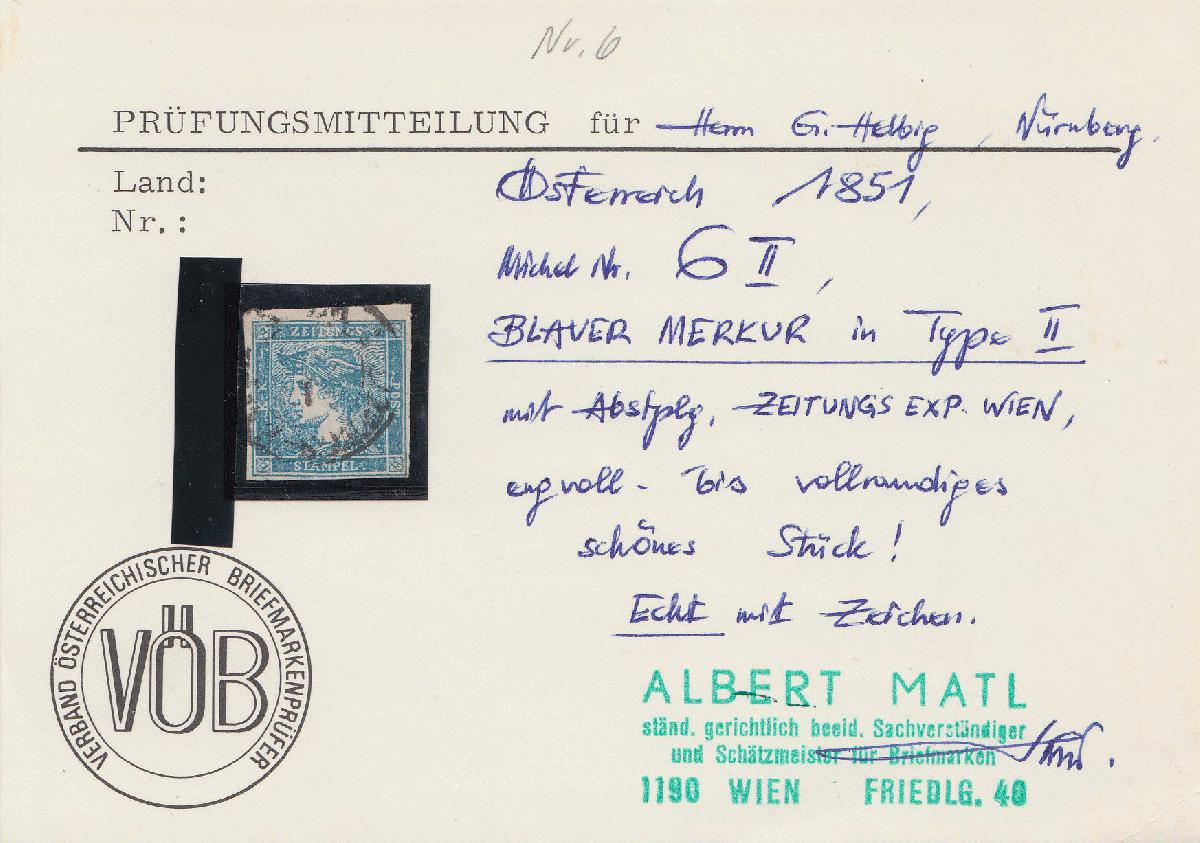 Nr. 6
PRÜFUNGSMITTEILUNG für Herrn G. Helbig, Nürnberg.
Land:
Nr.:
Österreich 1851,
Michel Nr. 6 II,
BLAUER MERKUR in Type II
mit Abstplg. ZEITUNGS EXP. WIEN,
engvoll - bis vollrandiges
schönes Stück!
Echt mit Zeichen.
ZEITUNGS
STAMPEL
VERBAND ÖSTERREICHISCHER BRIEFMARKENPRÜFER
VÖB
ALBERT MATL
ständ. gerichtlich beeid. Sachverständiger
und Schätzmeister für Briefmarken
1190 WIEN FRIEDLG. 40